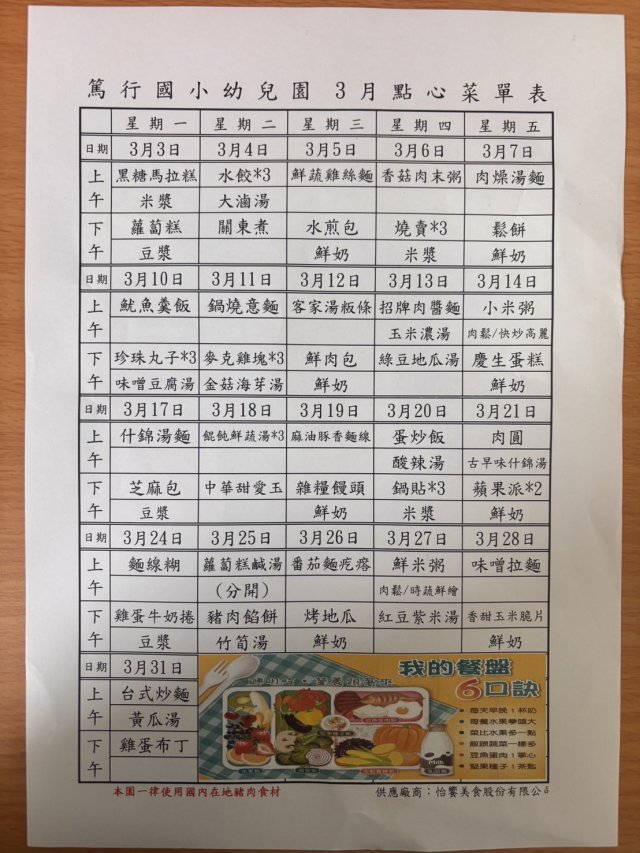 篤行國小幼兒園 3月點心菜單表
星期一 星期二 星期三 星期四 星期五
日期 3月3日 3月4日 3月5日 3月6日 3月7日
上午 黑糖馬拉糕 水餃*3 鮮蔬雞絲麵 香菇肉末粥 肉燥湯麵
米漿 大滷湯
下午 蘿蔔糕 關東煮 水煎包 燒賣*3 鬆餅
豆漿 鮮奶 米漿 鮮奶
日期 3月10日 3月11日 3月12日 3月13日 3月14日
上午 魷魚羹飯 鍋燒意麵 客家湯粄條 招牌肉醬麵 小米粥
玉米濃湯 肉鬆/快炒高麗
下午 珍珠丸子*3 麥克雞塊*3 鮮肉包 綠豆地瓜湯 慶生蛋糕
味噌豆腐湯 金菇海芽湯 鮮奶 鮮奶
日期 3月17日 3月18日 3月19日 3月20日 3月21日
上午 什錦湯麵 餛飩鮮蔬湯*3 麻油豚香麵線 蛋炒飯 肉圓
酸辣湯 古早味什錦湯
下午 芝麻包 中華甜愛玉 雜糧饅頭 鍋貼*3 蘋果派*2
豆漿 鮮奶 米漿 鮮奶
日期 3月24日 3月25日 3月26日 3月27日 3月28日
上午 麵線糊 蘿蔔糕鹹湯 番茄麵疙瘩 鮮米粥 味噌拉麵
(分開) 肉鬆/時蔬鮮繪
下午 雞蛋牛奶捲 豬肉餡餅 烤地瓜 紅豆紫米湯 香甜玉米脆片
豆漿 竹筍湯 鮮奶 鮮奶
日期 3月31日
上午 台式炒麵
黃瓜湯
下午 雞蛋布丁
我的餐盤
6口訣
每天早晚1杯奶
每餐水果拳頭大
菜比水果多一點
飯跟蔬菜一樣多
豆魚蛋肉1掌心
堅果種子1茶匙
Milk
本園一律使用國內在地豬肉食材 供應廠商：怡饗美食股份有限公司